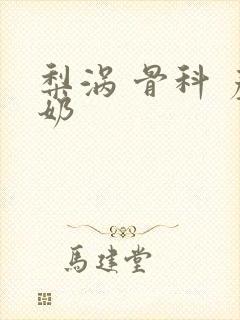 梨涡 骨科
奶
馬建堂